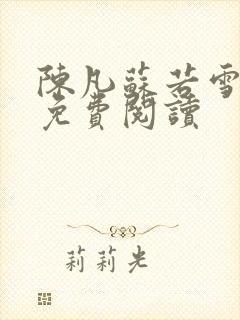 陳凡蘇若雪
免費閱讀
莉莉光